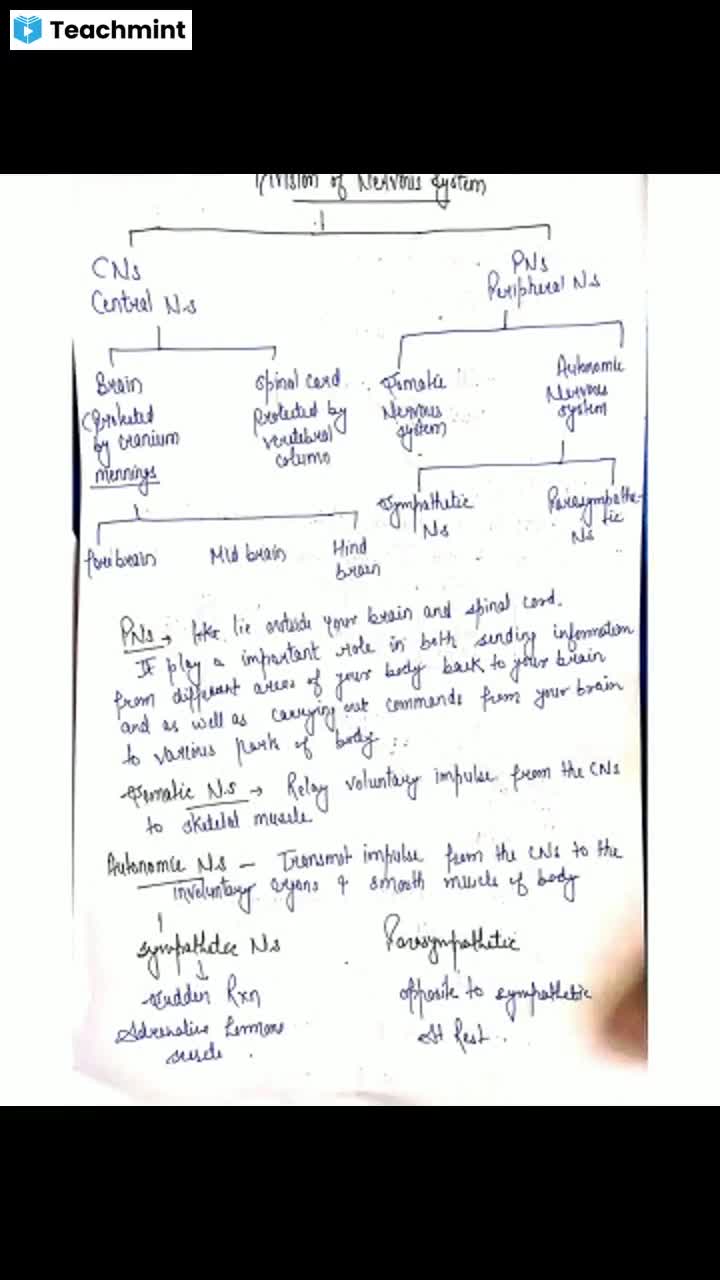 Teachmint
Division of Nervous System
CNs
Central N.s
PNs
Peripheral N.s
Brain
(Protected
by cranium
mennings
Spinal cord
Protected by
vertebral
column
Somatic
Nervous
system
Autonomic
Nervous
system
Sympathetic
Ns
Parasympathe-
tic
Ns
forebrain
Mid brain
Hind
brain
PNs → lie outside your brain and spinal cord.
It play a important role in both sending information
from different areas of your body back to your brain
and as well as carrying out commands from your brain
to various parts of body
Somatic N.S → Relay voluntary impulse from the CNs
to skeletal muscle
Autonomic N.S – Transmot impulse from the CNs to the
involuntary organs & smooth muscle of body
Sympathetic Ns
Sudden Rxn
Adrenaline
Parasympathetic
opposite to sympathetic
At Rest.